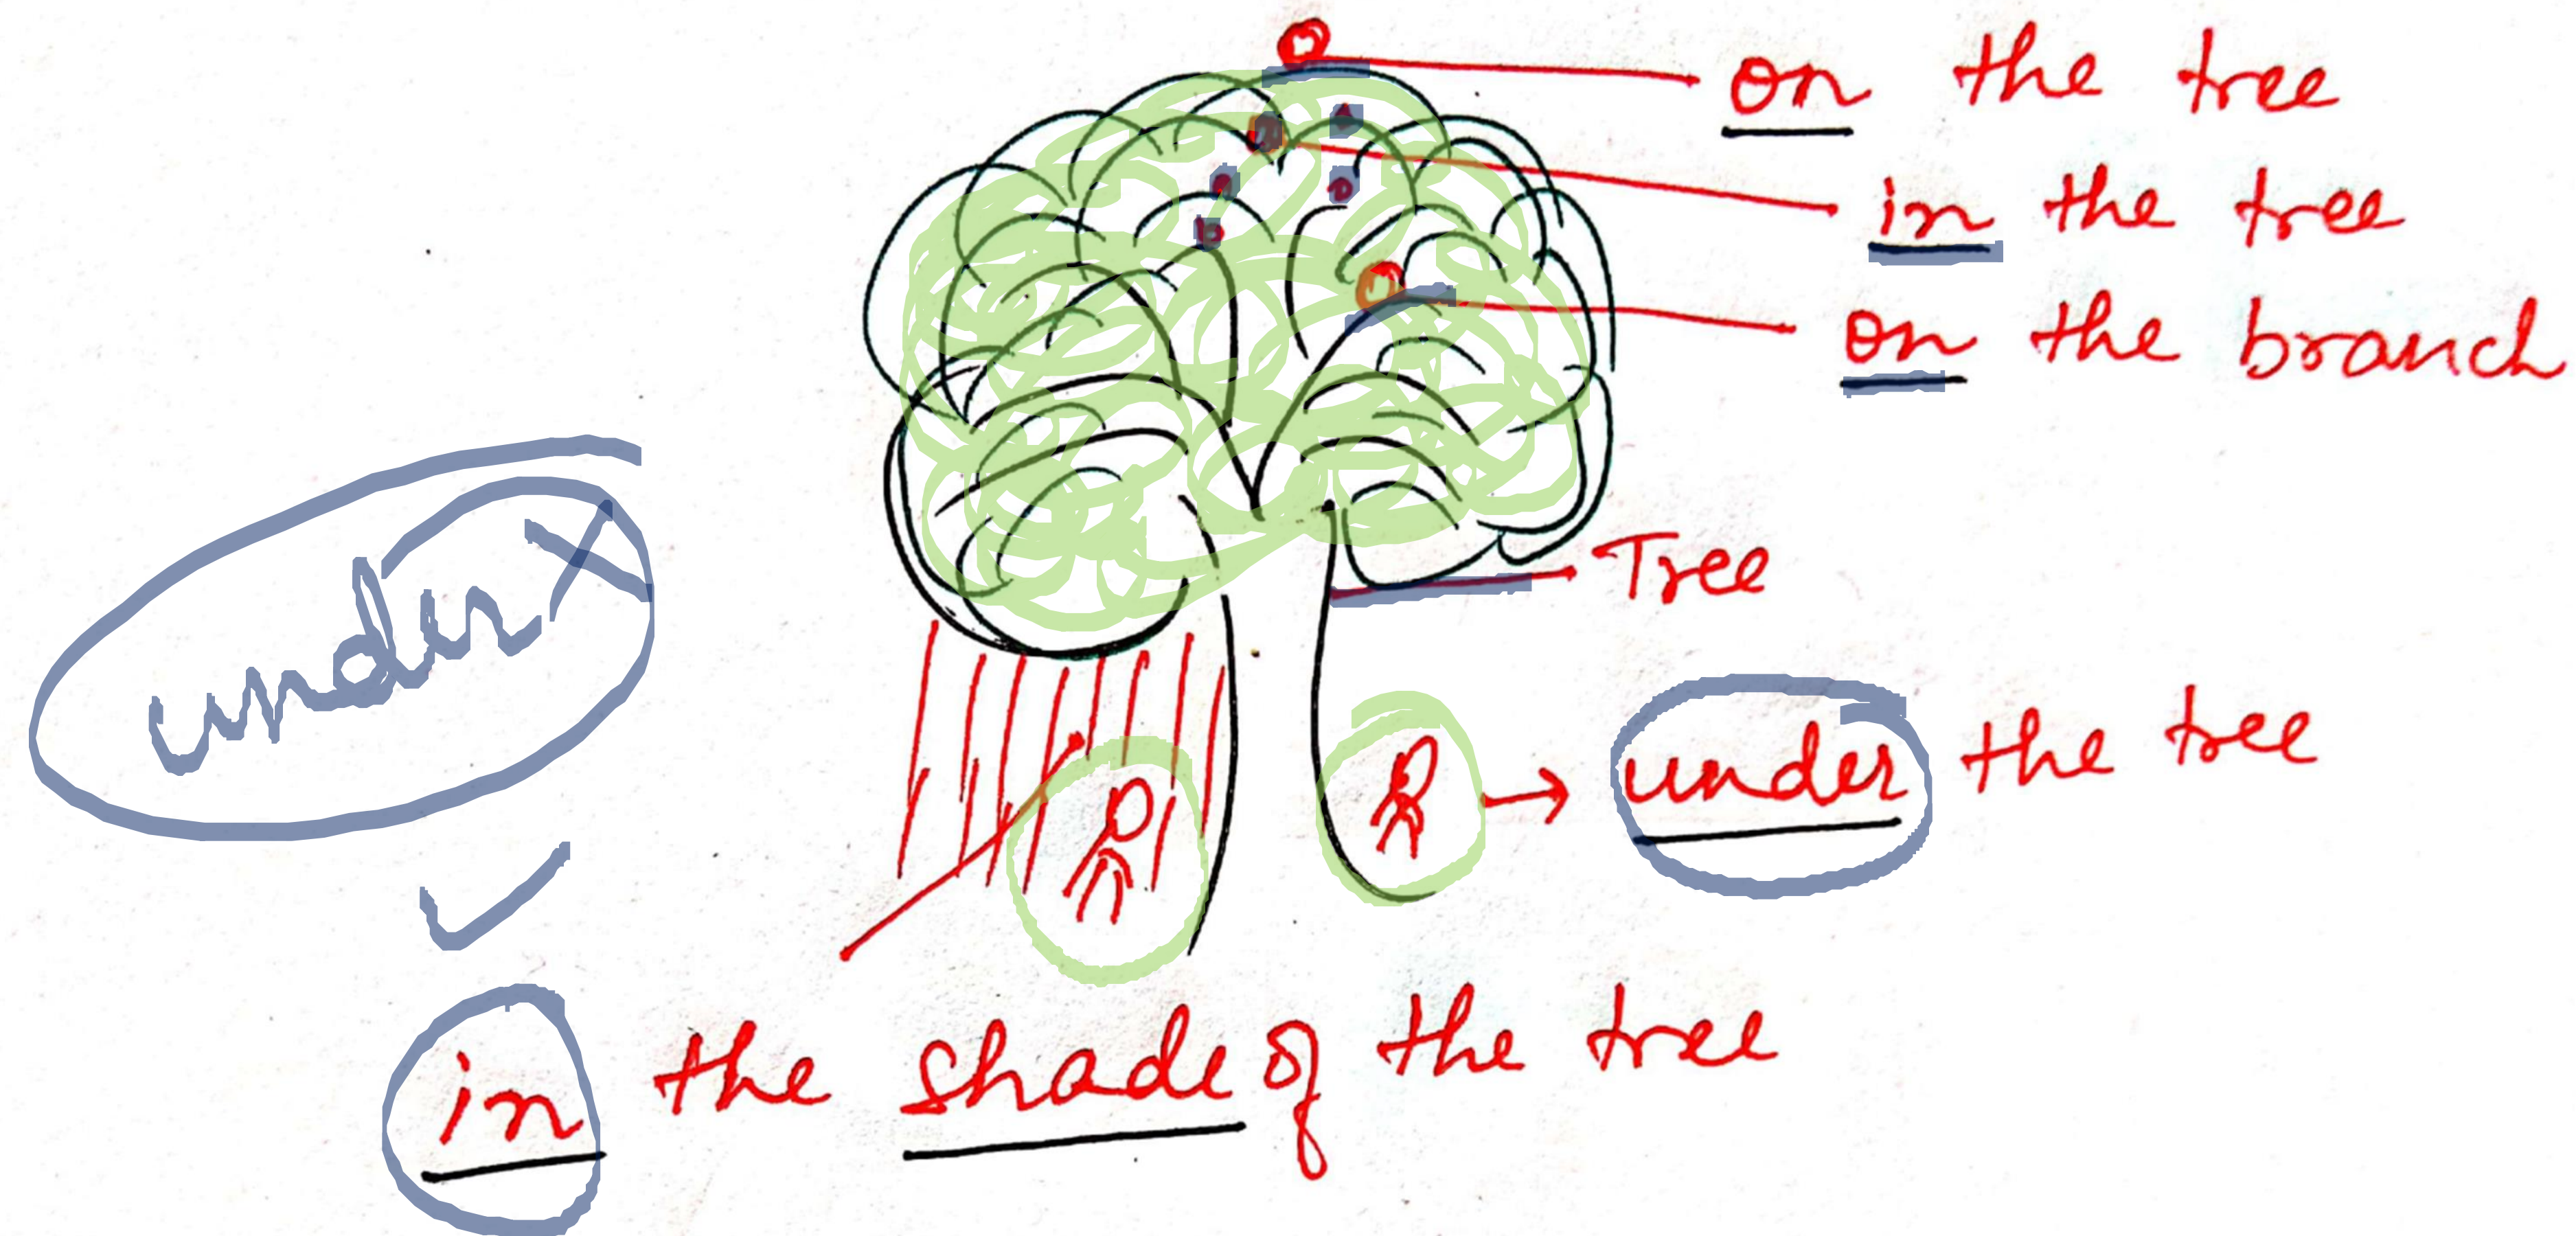 on the tree
in the tree
on the branch
Tree
under
under the tree
in the shade of the tree